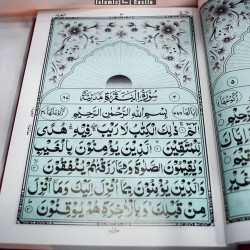 Islamic Castle
سُوْرَةُ الْبَقَرَةِ مَدَنِيَّةٌ
بِسْمِ اللّٰهِ الرَّحْمٰنِ الرَّحِيْمِ
الٓمّٓ ۚ ذٰلِكَ الْكِتٰبُ لَا رَيْبَ ۛ فِيْهِ ۛ هُدًى
لِّلْمُتَّقِيْنَ ۙ الَّذِيْنَ يُؤْمِنُوْنَ بِالْغَيْبِ
وَيُقِيْمُوْنَ الصَّلٰوةَ وَمِمَّا رَزَقْنٰهُمْ يُنْفِقُوْنَ ۙ
وَالَّذِيْنَ يُؤْمِنُوْنَ بِمَآ اُنْزِلَ اِلَيْكَ وَمَآ اُنْزِلَ
مِنْ قَبْلِكَ ۚ وَبِالْاٰخِرَةِ هُمْ يُوْقِنُوْنَ ۙ